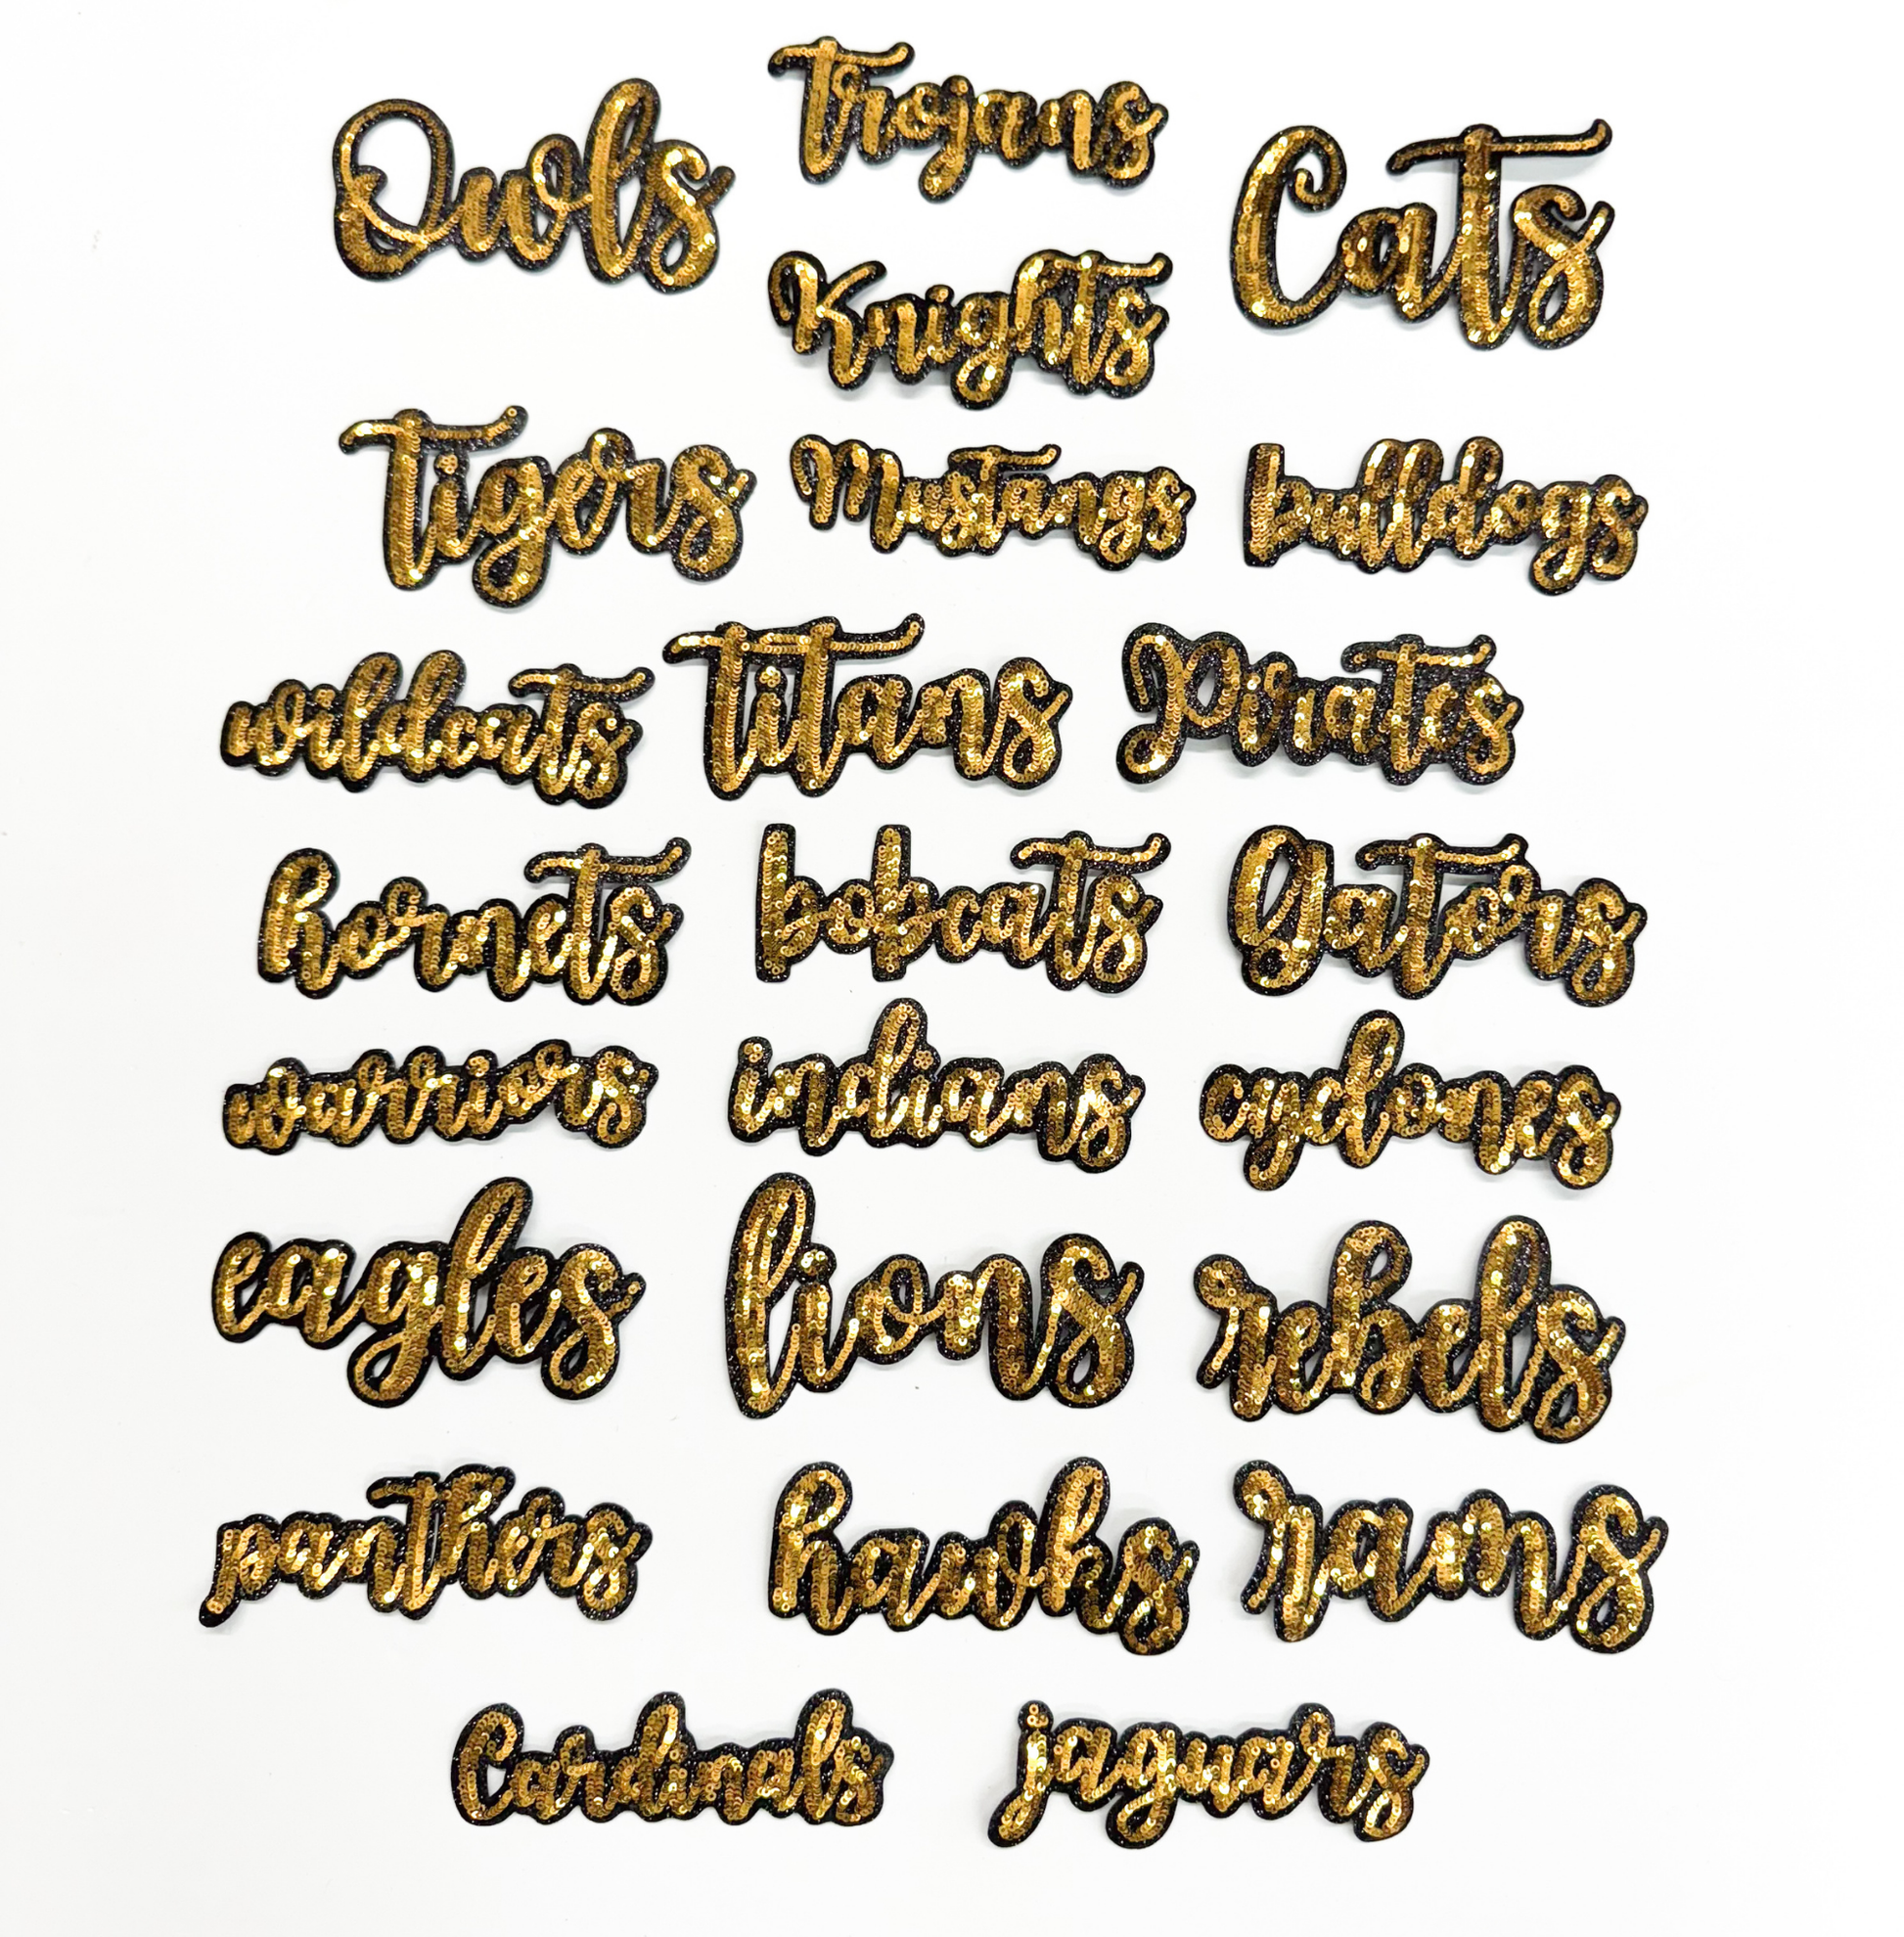 Owls
trojans
Cats
Knights
tigers
Mustangs
bulldogs
wildcats
titans
Pirates
hornets
bobcats
gators
warriors
indians
cyclones
eagles
lions
rebels
panthers
hawks
rams
Cardinals
jaguars